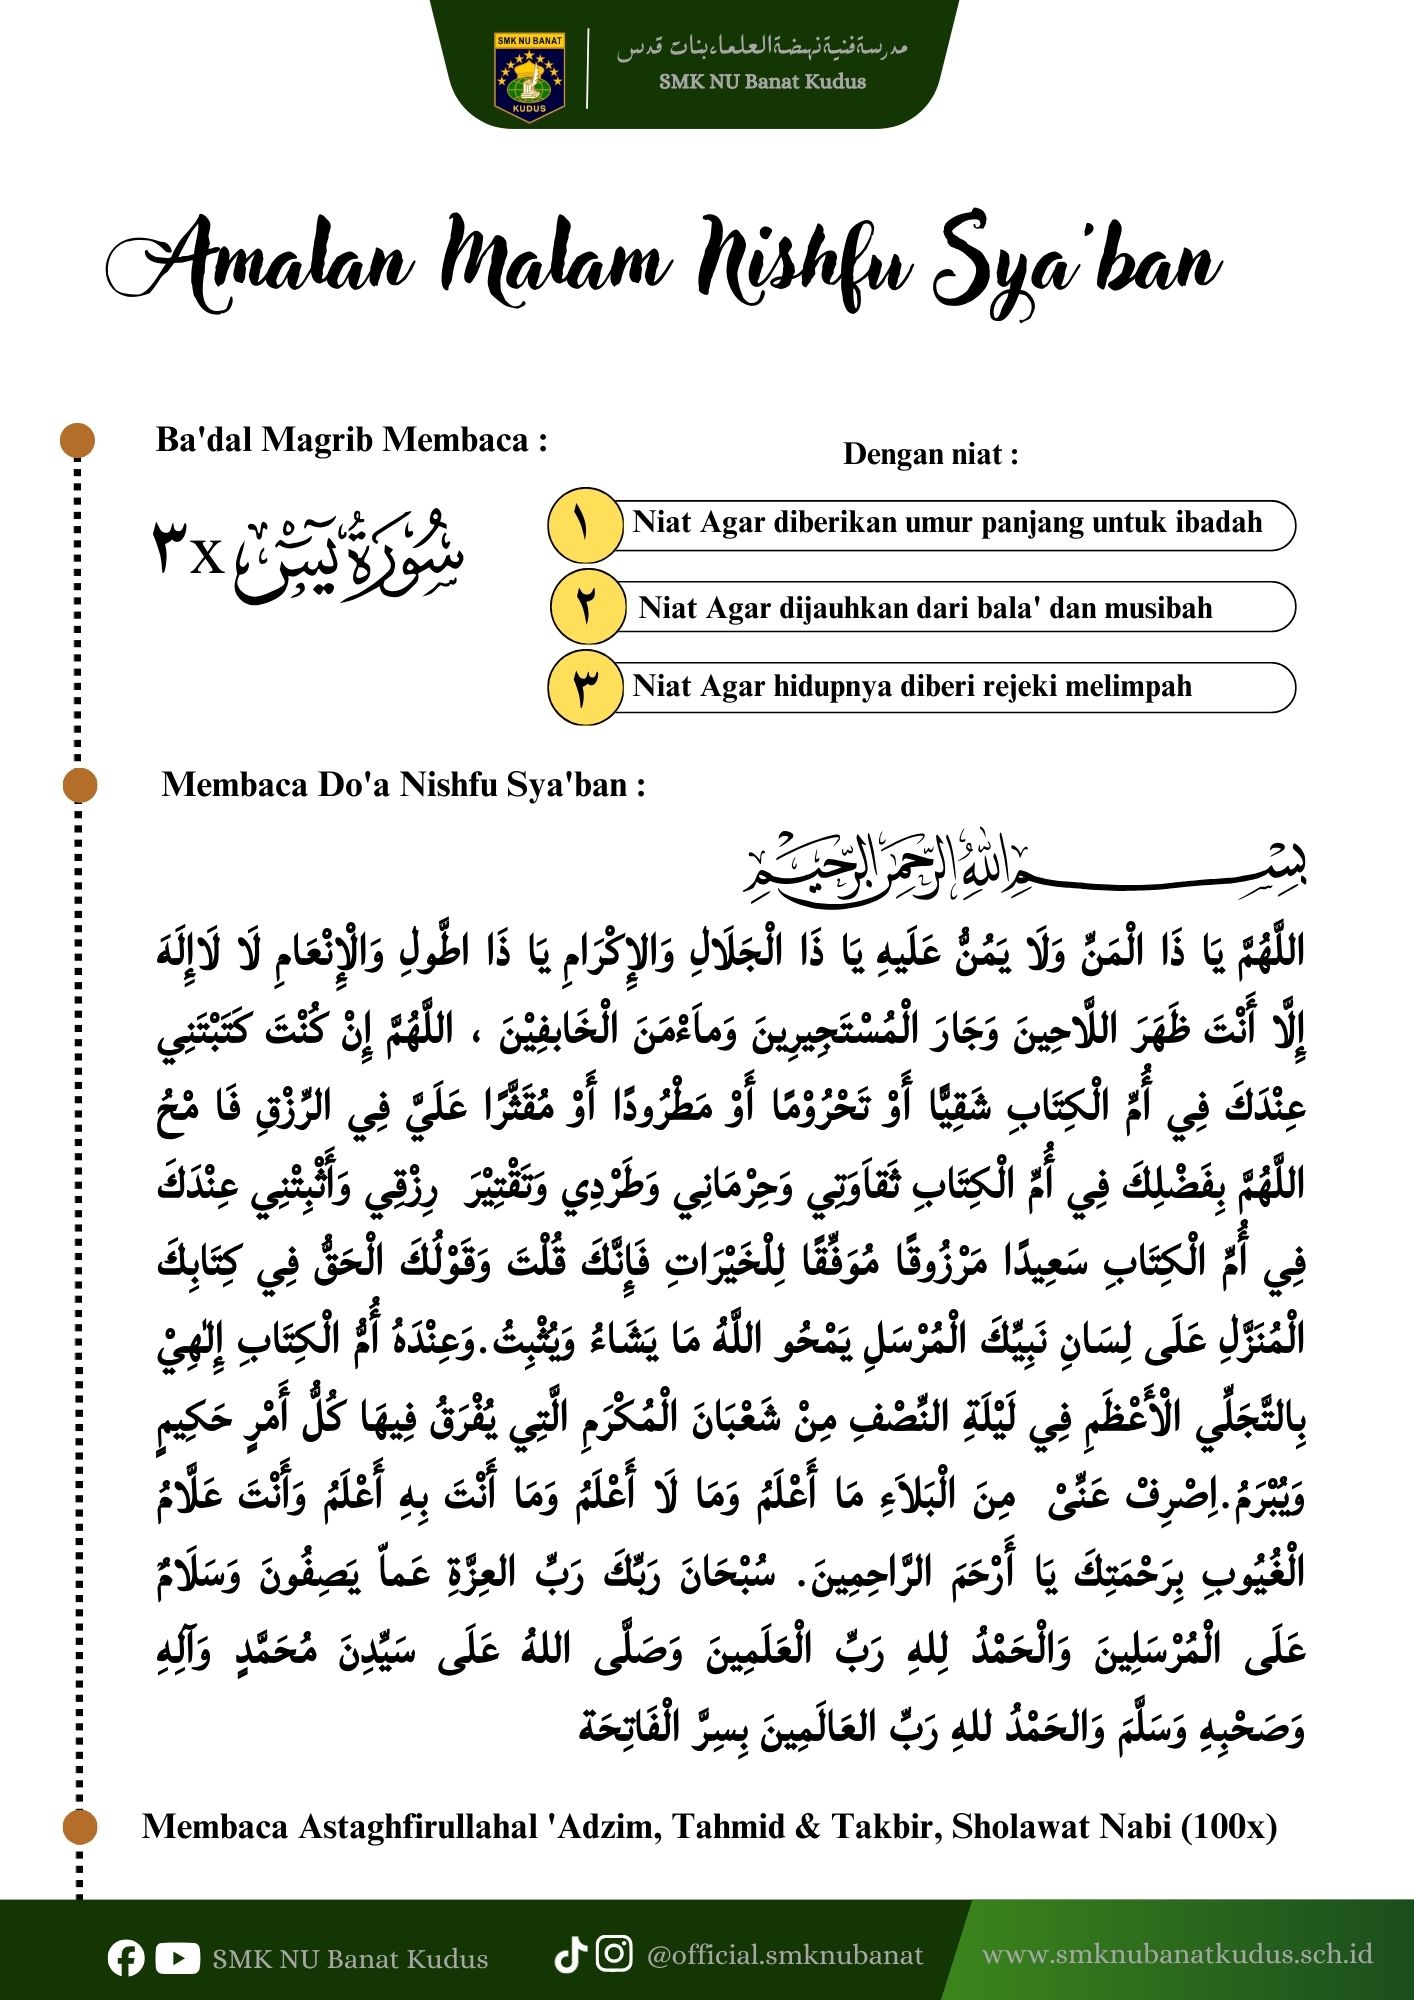 SMK NU BANAT
KUDUS
مدرسة فنية نهضة العلماء بنات قدس
SMK NU Banat Kudus
Amalan Malam Nishfu Sya'ban
Ba'dal Magrib Membaca :
٣x سُوْرَةُ يٰسٓ
Dengan niat :
١ Niat Agar diberikan umur panjang untuk ibadah
٢ Niat Agar dijauhkan dari bala' dan musibah
٣ Niat Agar hidupnya diberi rejeki melimpah
Membaca Do'a Nishfu Sya'ban :
بِسْمِ اللهِ الرَّحْمٰنِ الرَّحِيْمِ
اللَّهُمَّ يَا ذَا الْمَنِّ وَلَا يَمُنُّ عَلَيهِ يَا ذَا الْجَلَالِ وَالإِكْرَامِ يَا ذَا اطَّولِ وَالْإِنْعَامِ لَا لَاإِلَهَ
إِلَّا أَنْتَ ظَهَرَ اللَّاحِينَ وَجَارَ الْمُسْتَجِيرِينَ وَمَاَءْمَنَ الْخَابفِيْنَ ، اللَّهُمَّ إِنْ كُنْتَ كَتَبْتَنِي
عِنْدَكَ فِي أُمِّ الْكِتَابِ شَقِيًّا أَوْ تَحْرُوْمًا أَوْ مَطْرُودًا أَوْ مُقَثَّرًا عَلَيَّ فِي الرِّزْقِ فَا مْحُ
اللَّهُمَّ بِفَضْلِكَ فِي أُمِّ الْكِتَابِ ثَقاَوَتِي وَحِرْمَانِي وَطَرْدِي وَتَقْتِيْرَ رِزْقِي وَأَثْبِتْنِي عِنْدَكَ
فِي أُمِّ الْكِتَابِ سَعِيدًا مَرْزُوقًا مُوَفِّقًا لِلْخَيْرَاتِ فَإِنَّكَ قُلْتَ وَقَوْلُكَ الْحَقُّ فِي كِتَابِكَ
الْمُنَزَّلِ عَلَى لِسَانِ نَبِيِّكَ الْمُرْسَلِ يَمْحُو اللَّهُ مَا يَشَاءُ وَيُثْبِتُ.وَعِنْدَهُ أُمُّ الْكِتَابِ إِلٰهِيْ
بِالتَّجَلِّي الْأَعْظَمِ فِي لَيْلَةِ النِّصْفِ مِنْ شَعْبَانَ الْمُكْرَمِ الَّتِي يُفْرَقُ فِيهَا كُلُّ أَمْرٍ حَكِيمٍ
وَيُبْرَمُ.اِصْرِفْ عَنِّيْ مِنَ الْبَلاَءِ مَا أَعْلَمُ وَمَا لَا أَعْلَمُ وَمَا أَنْتَ بِهِ أَعْلَمُ وَأَنْتَ عَلَّامُ
الْغُيُوبِ بِرَحْمَتِكَ يَا أَرْحَمَ الرَّاحِمِينَ. سُبْحَانَ رَبِّكَ رَبِّ العِزَّةِ عَماّ يَصِفُونَ وَسَلَامٌ
عَلَى الْمُرْسَلِينَ وَالْحَمْدُ لِلهِ رَبِّ الْعَلَمِينَ وَصَلَّى اللهُ عَلَى سَيِّدِنَ مُحَمَّدٍ وَآلِهِ
وَصَحْبِهِ وَسَلَّمَ وَالحَمْدُ للهِ رَبِّ العَالَمِينَ بِسِرَّ الْفَاتِحَة
Membaca Astaghfirullahal 'Adzim, Tahmid & Takbir, Sholawat Nabi (100x)
SMK NU Banat Kudus
@official.smknubanat
www.smknubanatkudus.sch.id